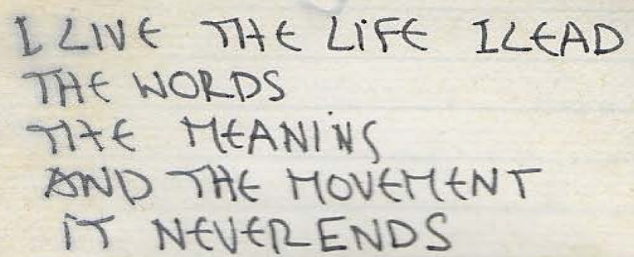 I LIVE THE LIFE I LEAD
THE WORDS
THE MEANING
AND THE MOVEMENT
IT NEVER ENDS